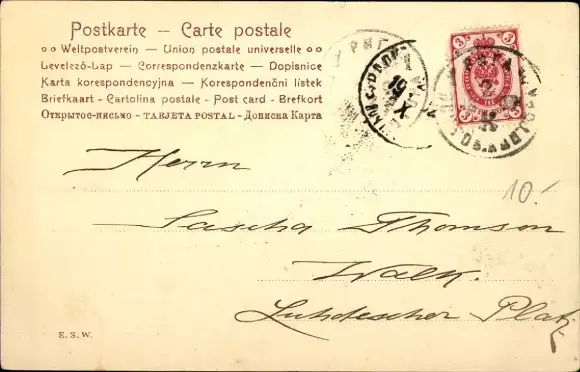 Postkarte — Carte postale
Weltpostverein — Union postale universelle
Levelező-Lap — Correspondenzkarte — Dopisnice
Karta korespondencyjna — Korespondenční lístek
Briefkaart - Cartolina postale - Post card - Brefkort
Открытое-письмо - TARJETA POSTAL - Дописна Карта
3 3
3 3
19
X
10.
Herrn
Sascha Thomson
Walk.
Luhdescher Platz
E. S. W.